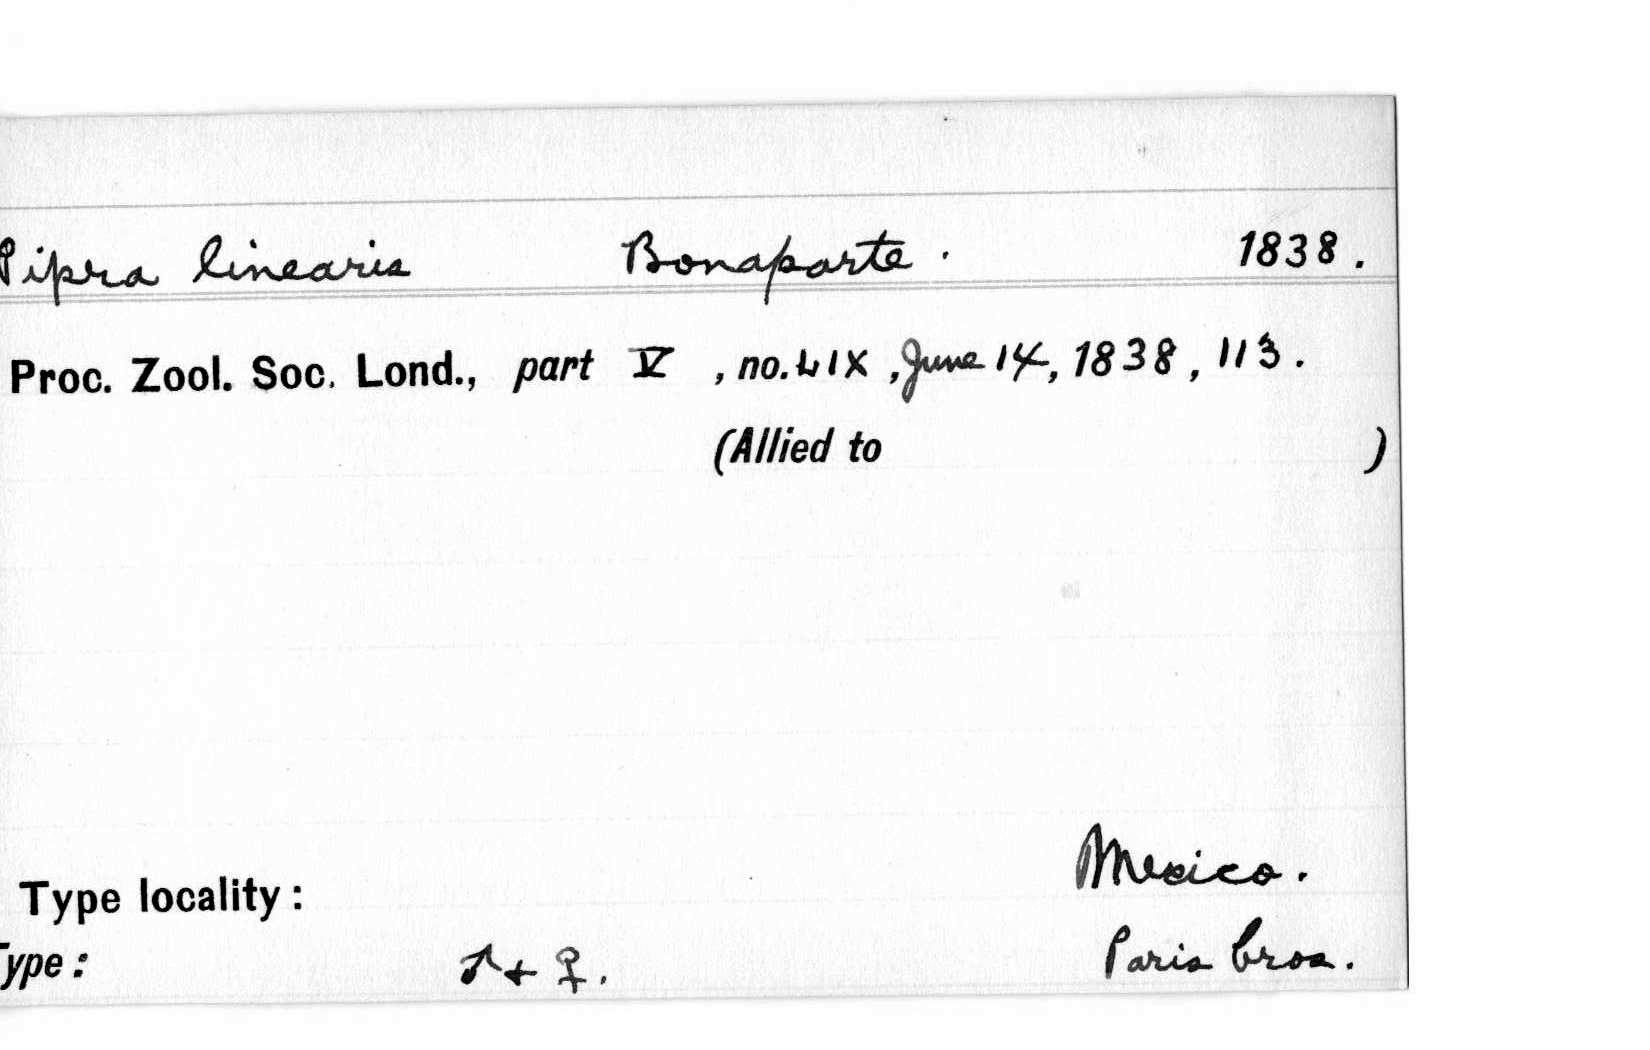 Pipra linearis Bonaparte. 1838.
Proc. Zool. Soc. Lond., part V, no. LIX, June 14, 1838, 113.
(Allied to )
Type locality: Mexico.
Type: ♂ + ♀. Paris bros.